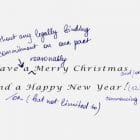 without any legally binding
commitment on our part
reasonably
Have a Merry Christmas
and/or
and a Happy New Year! (12
or (but not limited to)
commencing